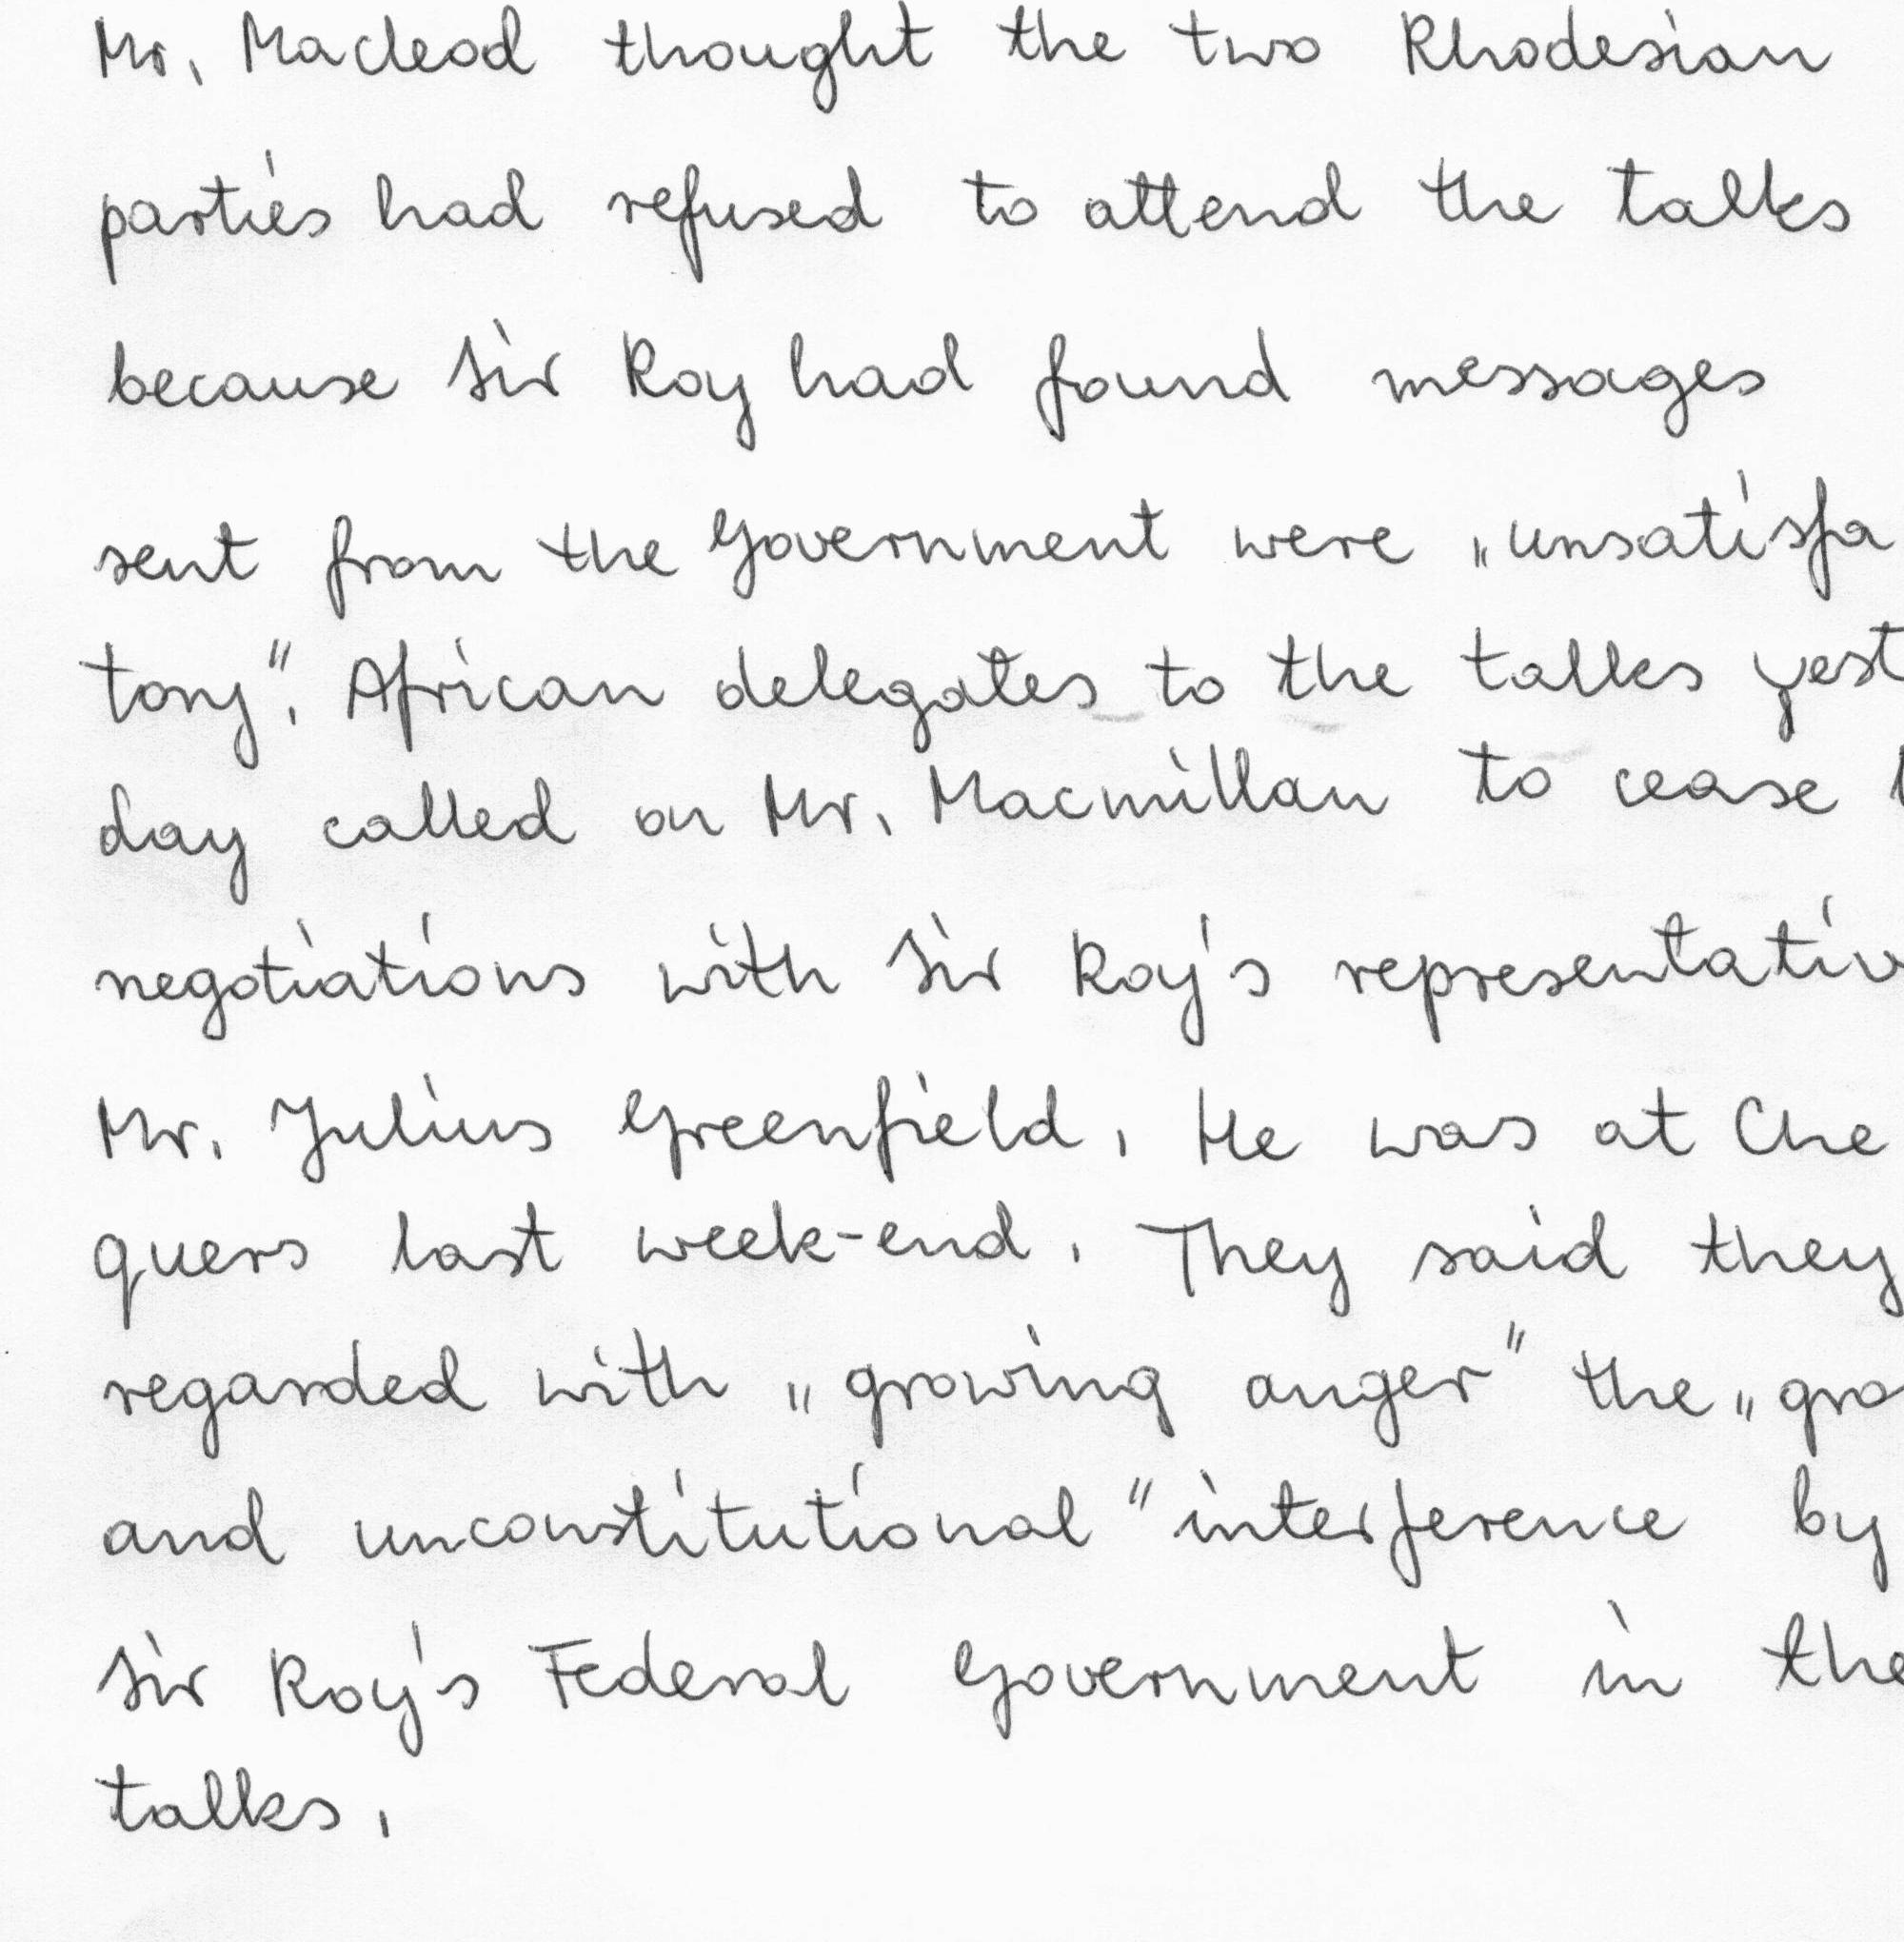 Mr. Macleod thought the two Rhodesian
parties had refused to attend the talks
because Sir Roy had found messages
sent from the Government were „unsatisfa
tory". African delegates to the talks yest
day called on Mr. Macmillan to cease
negotiations with Sir Roy's representativ
Mr. Julius Greenfield. He was at Che
quers last week-end. They said they
regarded with „growing anger" the „gro
and unconstitutional" interference by
Sir Roy's Federal Government in the
talks.